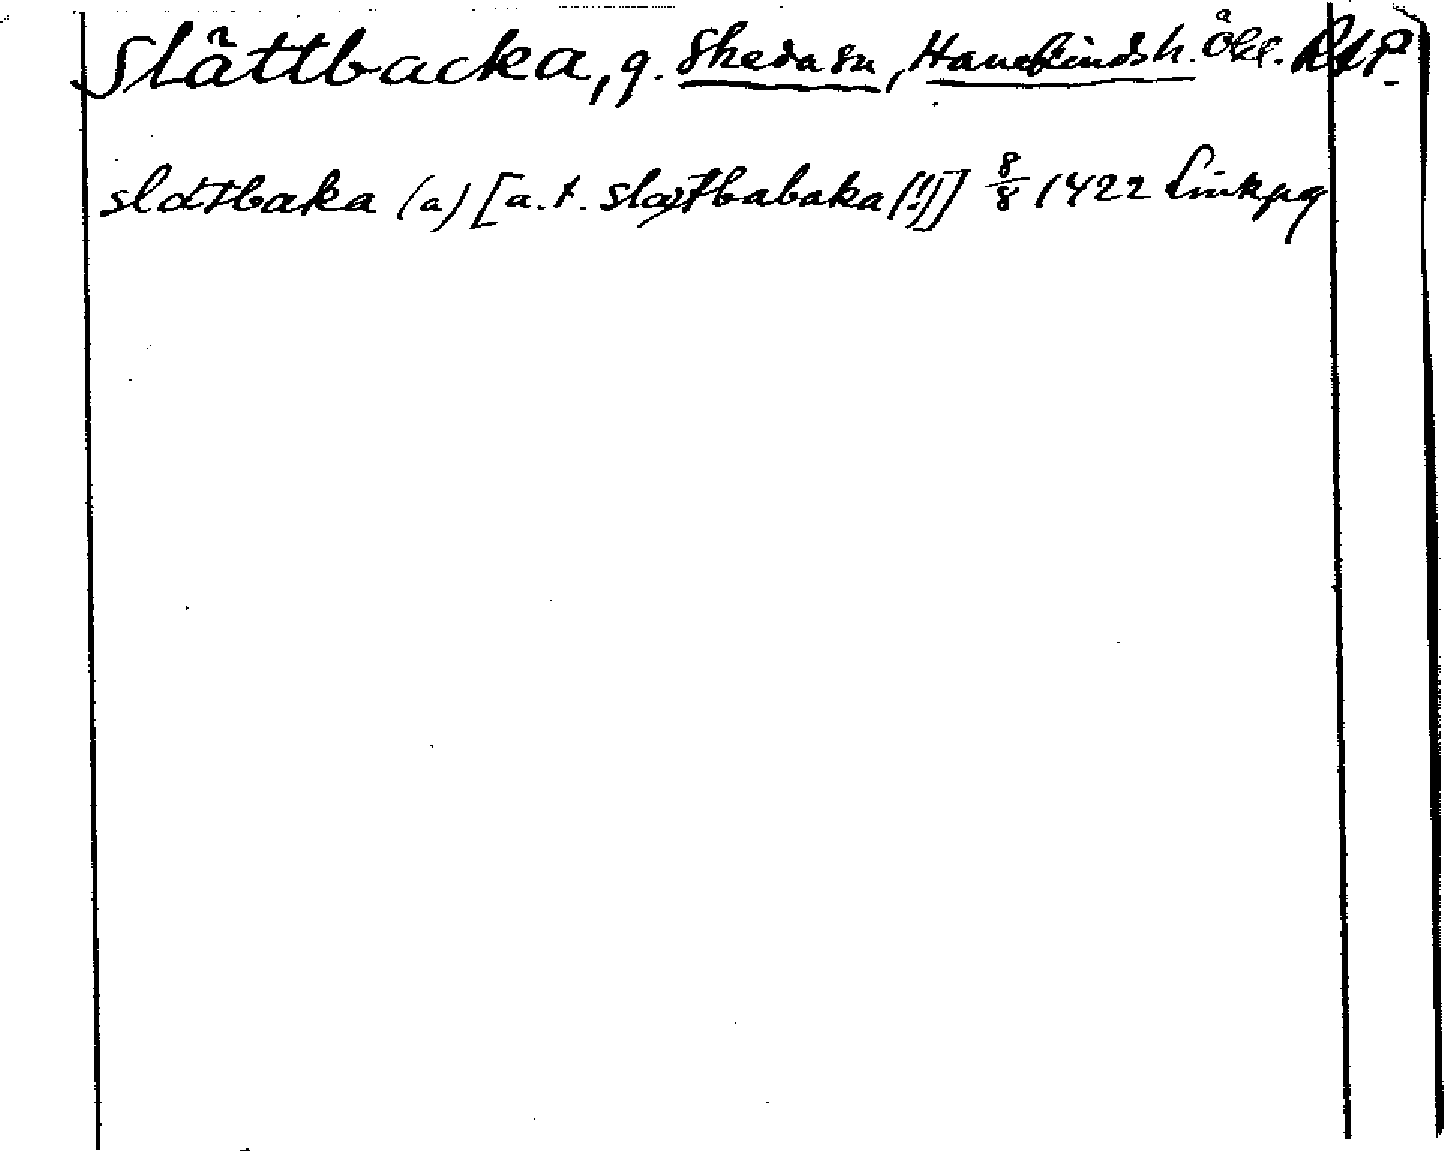 Slättbacka, g. Skeda sn, Hanekinds h. Ögl. RAP
slætbaka (a) [a. t. slæætbabaka (!)] 8/8 1422 Linkpg